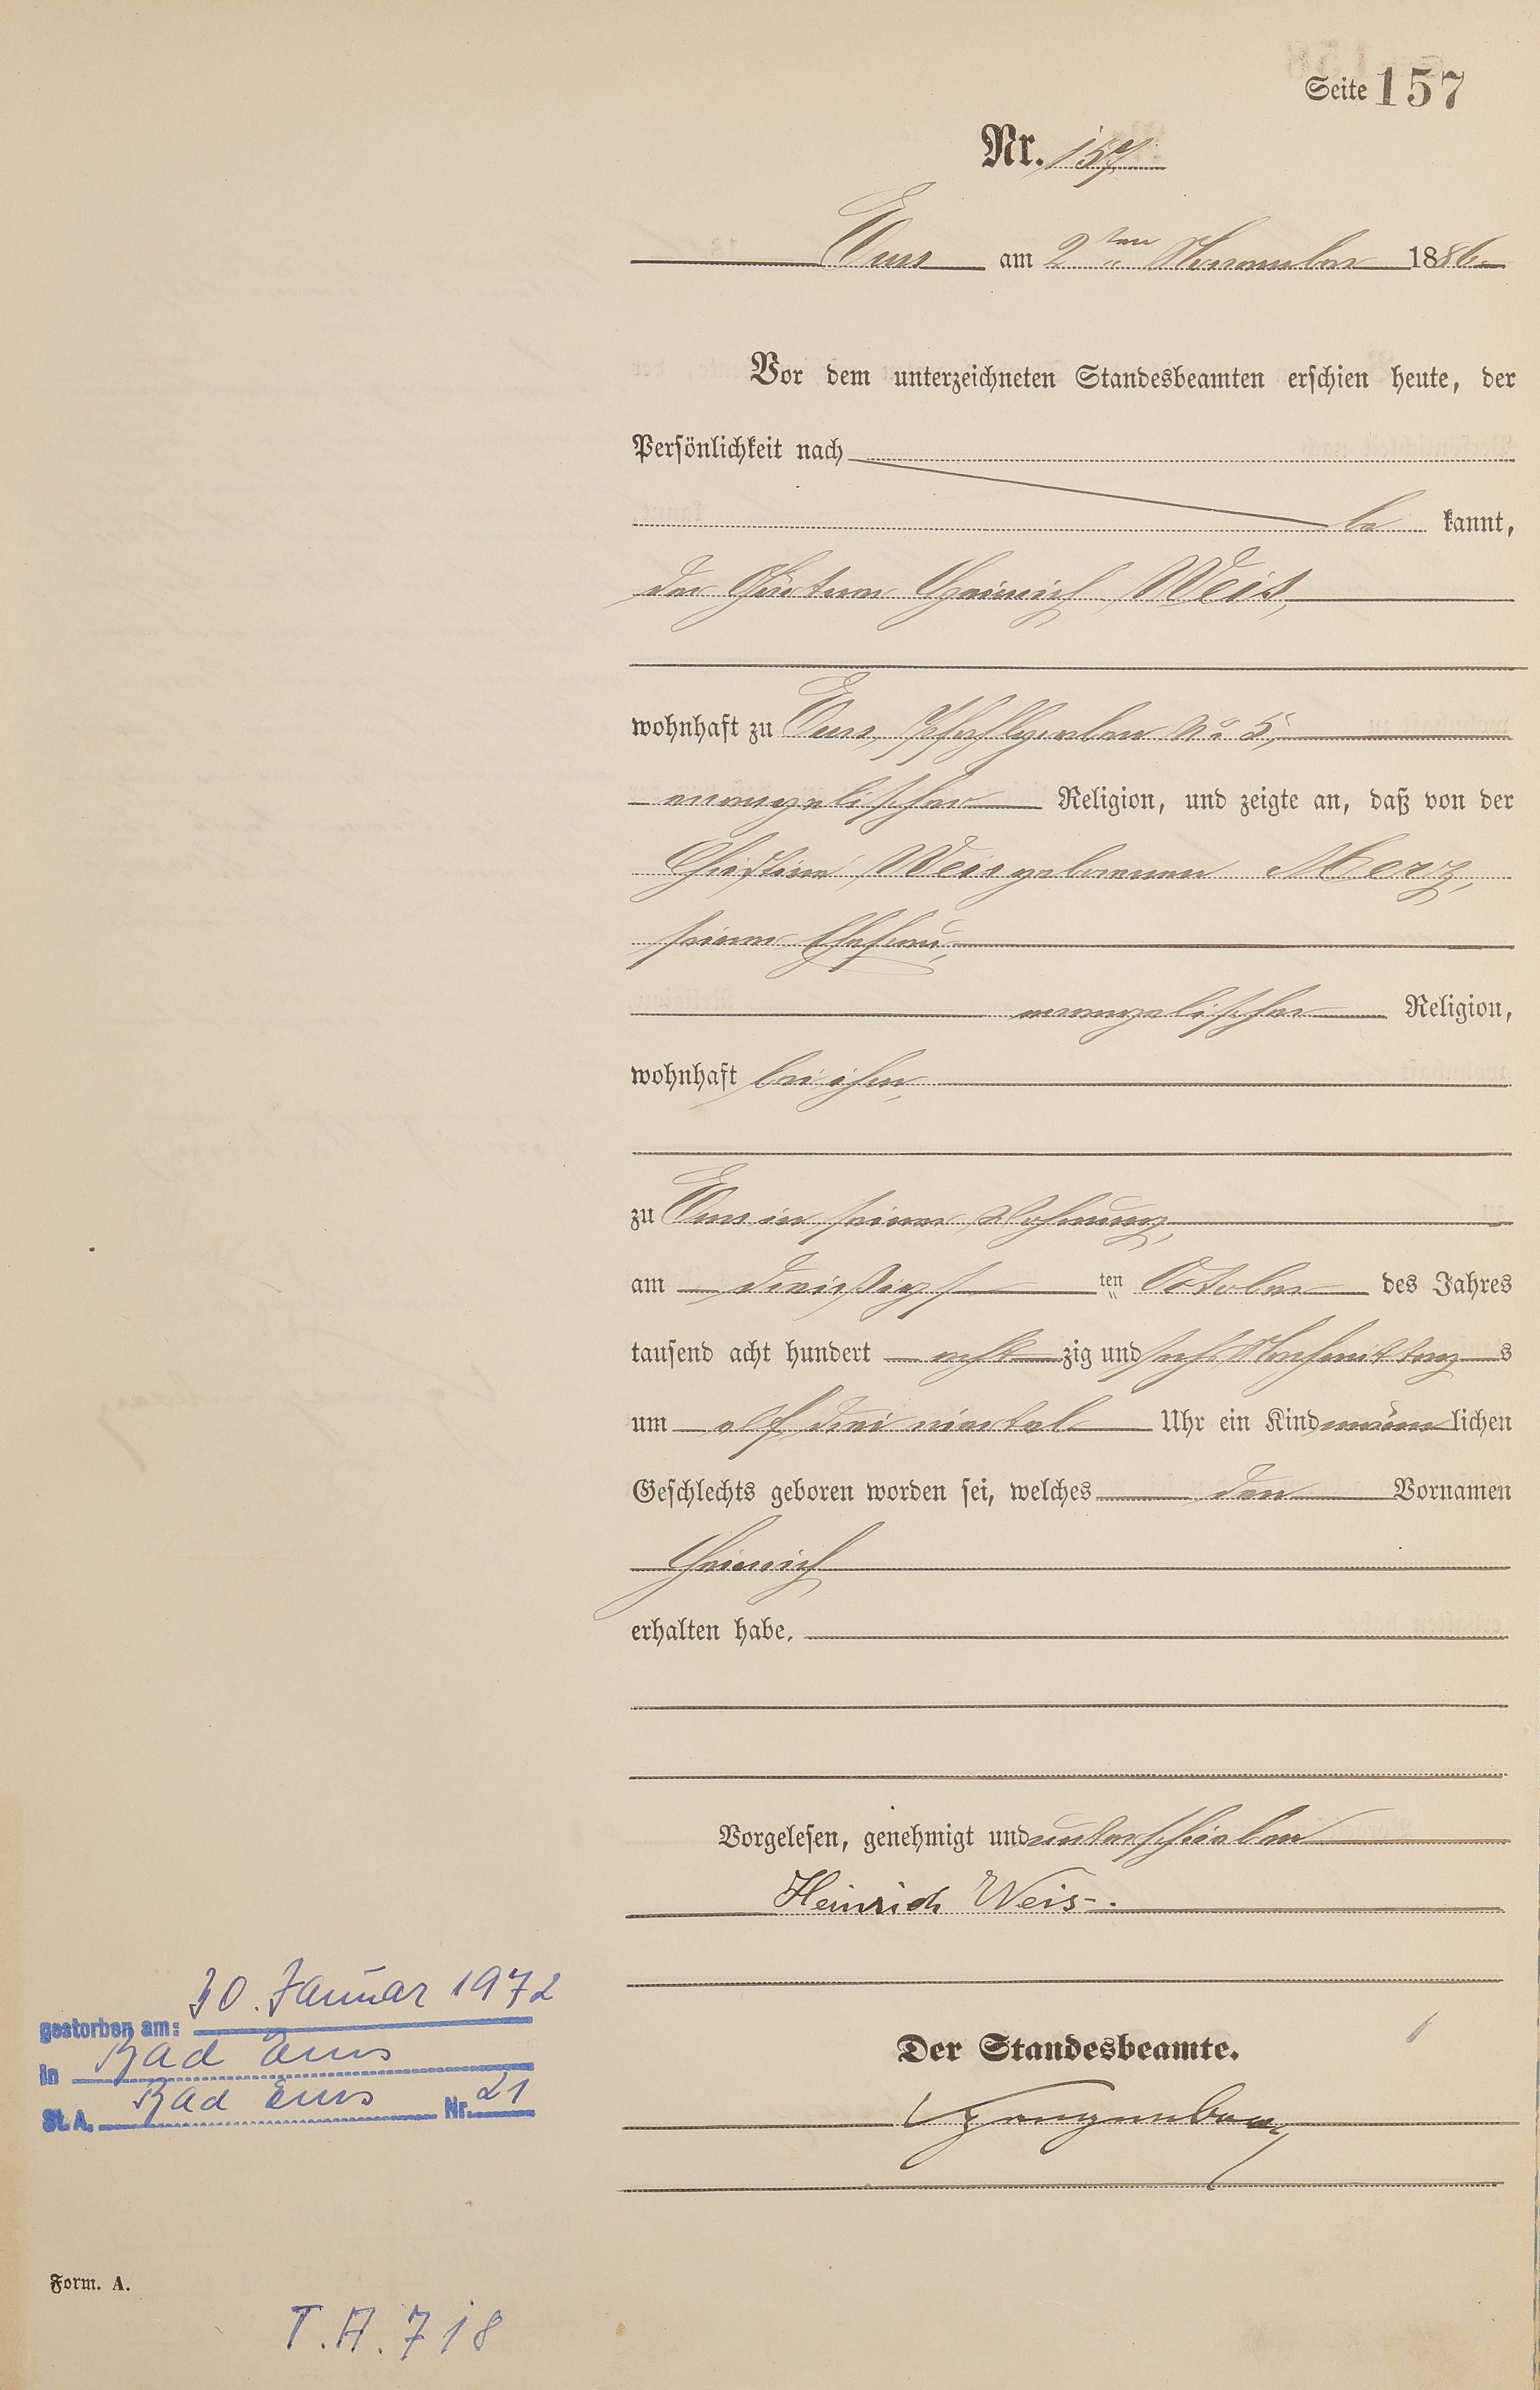 Seite 157
Nr. 157
Ems am 2ten November 1886.
Vor dem unterzeichneten Standesbeamten erschien heute, der
Persönlichkeit nach
be kannt,
der Heinrich Weis,
wohnhaft zu Ems, Pfahlgraben No 5,
evangelischer Religion, und zeigte an, daß von der
Weis geborenen Merz,
seiner Ehefrau,
evangelischer Religion,
wohnhaft bei ihm,
zu Ems in seiner Wohnung,
am dreißigs ten October des Jahres
tausend acht hundert acht zig und sechs Nachmittag s
um elf drei viertel Uhr ein Kind männ lichen
Geschlechts geboren worden sei, welches den Vornamen
Heinrich
erhalten habe.
Vorgelesen, genehmigt und unterschrieben
Heinrich Weis.
Der Standesbeamte.
gestorben am: 30. Januar 1972
in Bad Ems
St. A. Bad Ems Nr. 21
Form. A.
T.A. 718